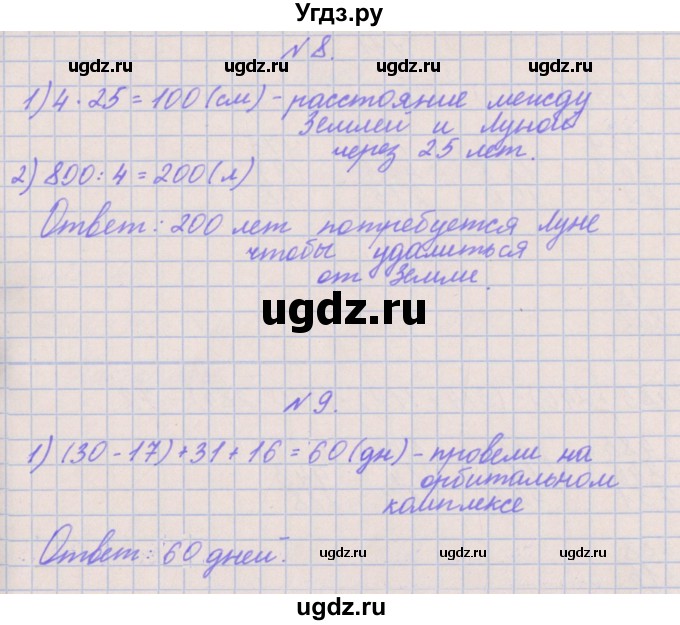 Угдз.ру
№ 8.
ugdz.ru ugdz.ru ugdz.ru
1) 4 · 25 = 100 (см) - расстояние между
Землей и Луной
через 25 лет.
2) 800 : 4 = 200 (л)
ugdz.ru ugdz.ru ugdz.ru
Ответ: 200 лет потребуется Луне
чтобы удалиться
от Земли.
ugdz.ru
№ 9.
ugdz.ru ugdz.ru ugdz.ru
1) (30 - 17) + 31 + 16 = 60 (дн) - провели на
орбитальном
комплексе
Ответ: 60 дней.
ugdz.ru ugdz.ru ugdz.ru
ugdz.ru